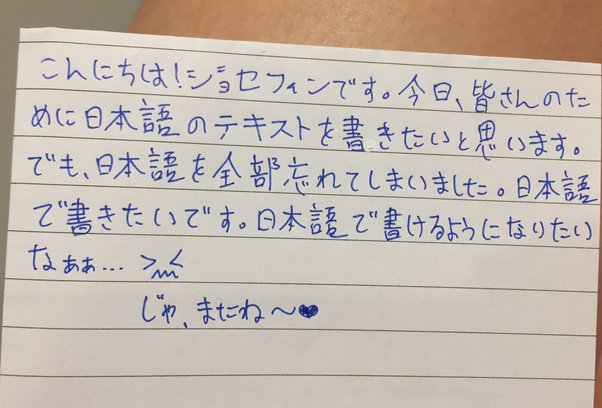 こんにちは!ジョセフィンです。今日、皆さんのた
めに日本語のテキストを書きたいと思います。
でも、日本語を全部忘れてしまいました。日本語
で書きたいです。日本語で書けるようになりたい
なぁぁ... >﹏<
じゃ、またね〜♥